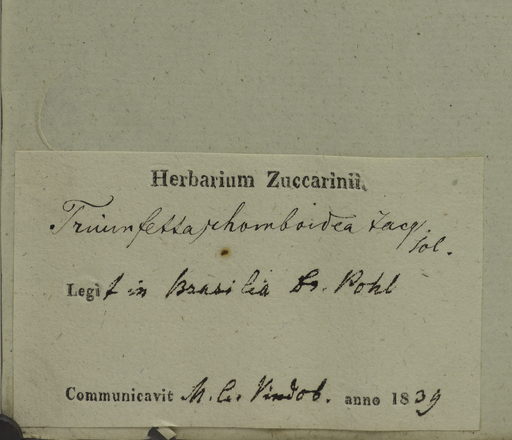 Herbarium Zuccarinii.
Triumfetta rhomboidea Jacq.
Legit in Brasilia Dr. Pohl
Communicavit M. C. Vindob. anno 1839